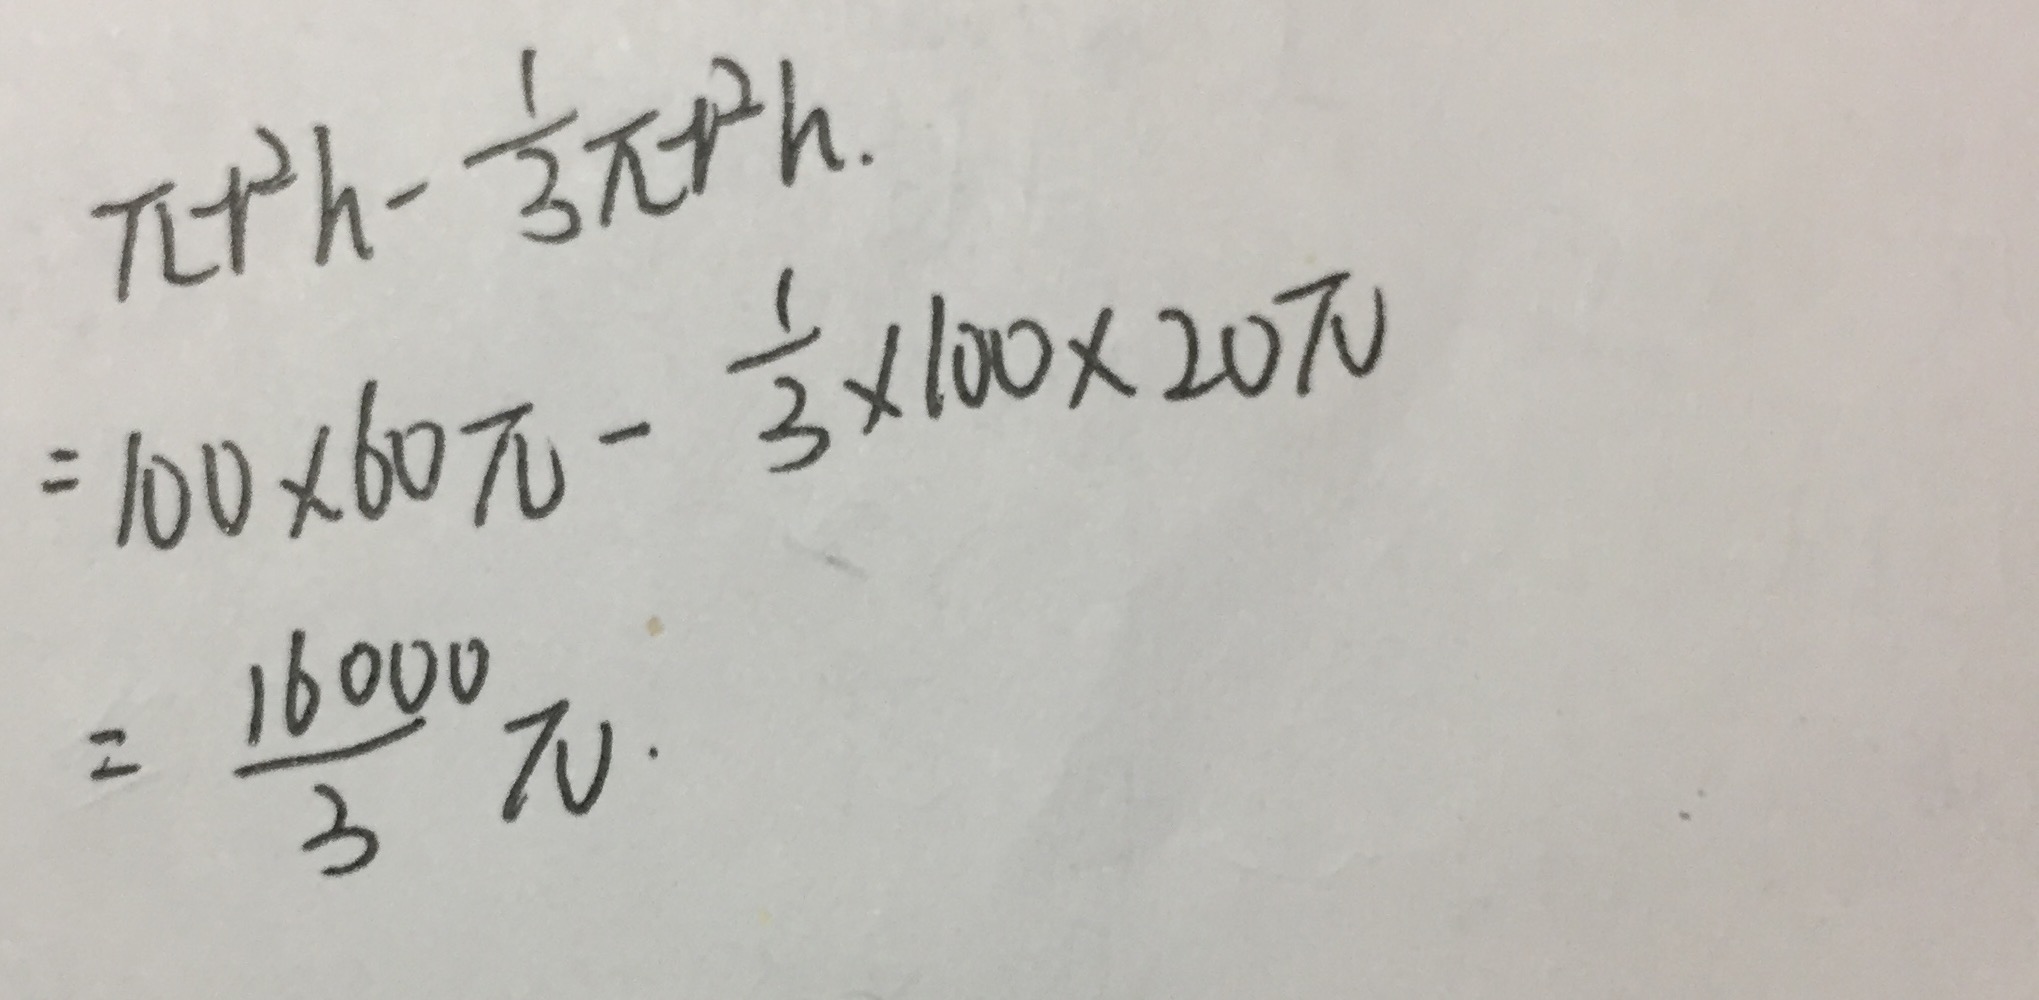 πr²h - 1/3 πr²h.
= 100 × 60π - 1/3 × 100 × 20π
= 16000/3 π.